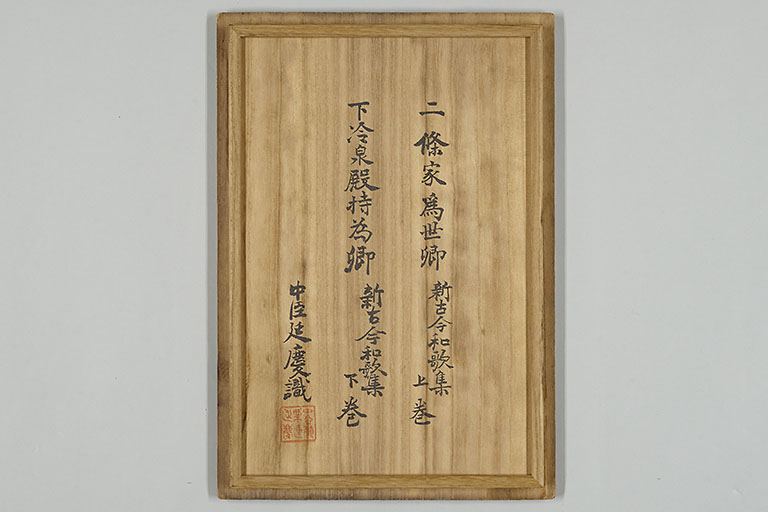 二條家為世卿 新古今和歌集 上巻
下冷泉殿持為卿 新古今和歌集 下巻
中臣延慶識